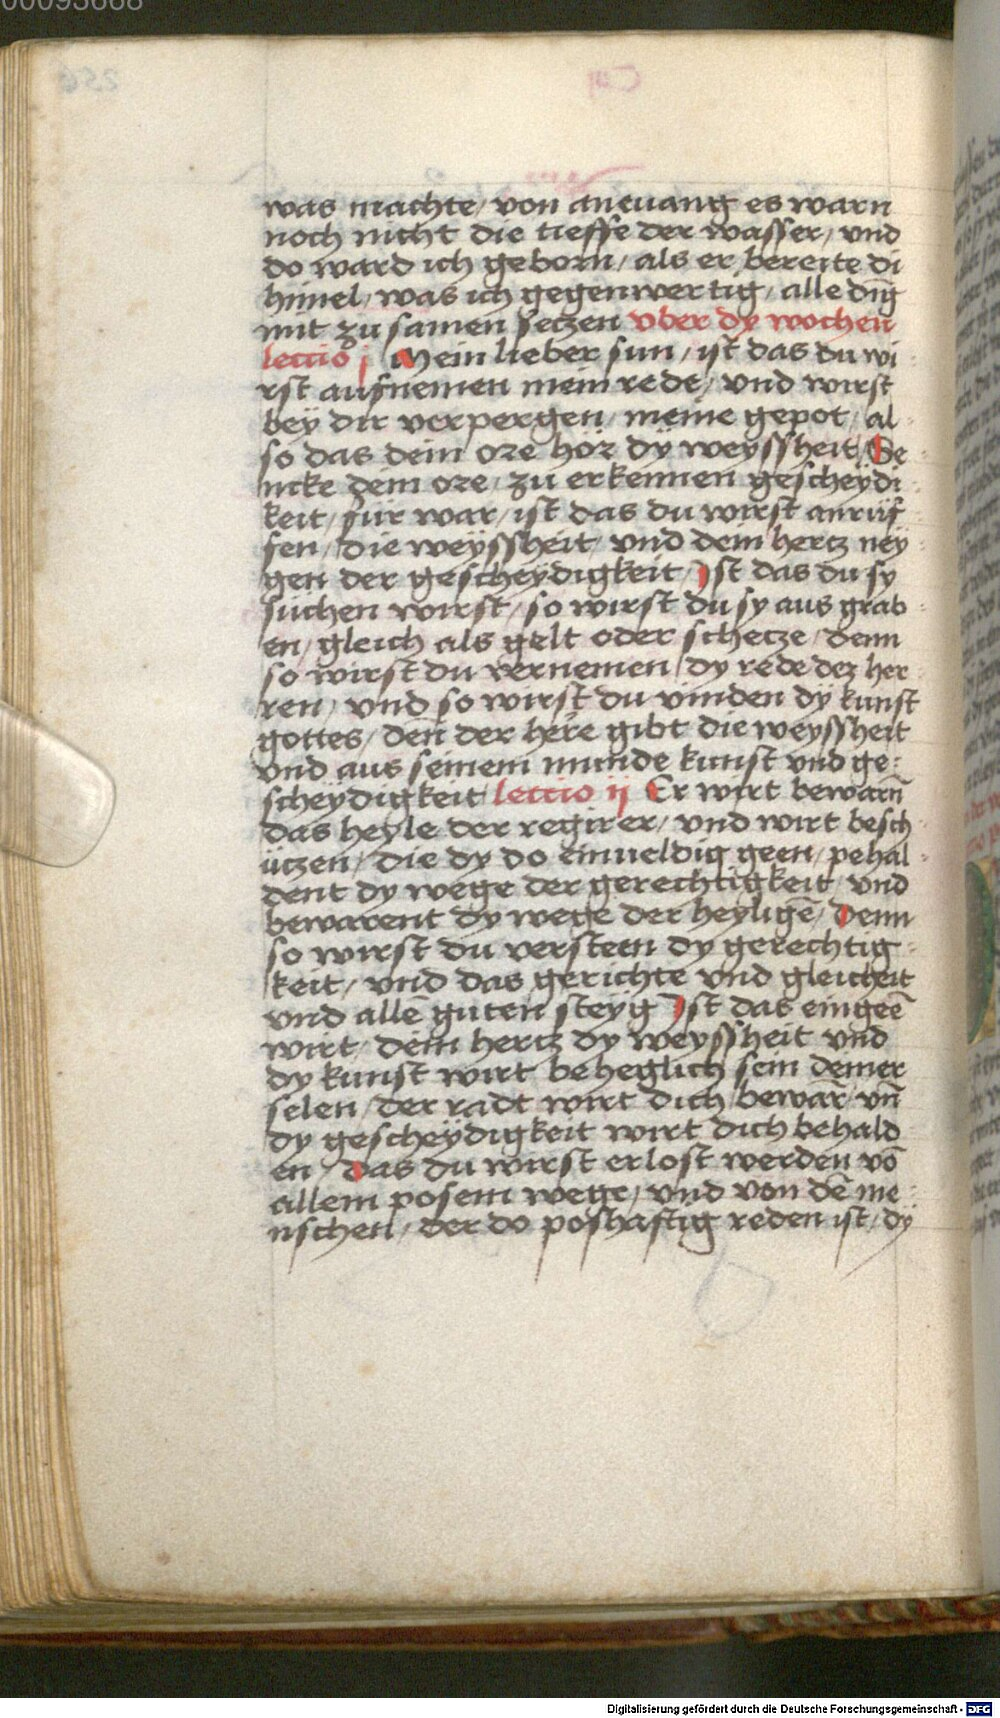 00093668
was machte / von anevang es warn
noch nicht die tieffe der wasser / und
do ward ich geborn / als er bereite di
himel / was ich gegenwertig / alle ding
mit zu samen setzen vber dy wochen
lectio j Mein lieber sun / ist das du wi
rst aufnemen mein rede / vnd wirst
beÿ dir verpergen / meine gepot / al
so das dein ore hör dÿ weÿssheit / Se
ncke dein ore / zu erkennen gescheÿdi
keit / für war / ist das du wirst anrüf
fen / die weÿssheit / vnd dein hertz neÿ
gen der gescheÿdigkeit / Ist das du sy
suchen wirst / so wirst du sy aus grab
en / gleich als gelt oder schecze / denn
so wirst du vernemen / dy rede dez her
ren / vnd so wirst du vinden dÿ kunst
gottes / den̄ der here gibt die weysſheit
vnd aus seinem munde kunst vnd ge
scheÿdigkeit lectio ij Er wirt bewarn̄
das heyle der regirer / vnd wirt besch
ützen / die dy do einueldig geen / pehal
dent dy wege der gerechtigkeit / vnd
bewarent dy wege der heyligē / Denn
so wirst du versteen dy gerechtig
keit / vnd das gerichte vnd gleicheit
vnd allē guten steyg Ist das eingeē
wirt / dein hertz dy weysſheit vnd
dy kunst wirt beheglich sein deiner
selen / der radt wirt dich bewār / vn̄
dy gescheÿdigkeit wirt dich behald
en / Das du wirst erlost werden vō
allem posem wege / vnd von dē me
nschen / der do poshaftig reden ist / dÿ
Digitalisierung gefördert durch die Deutsche Forschungsgemeinschaft - DFG